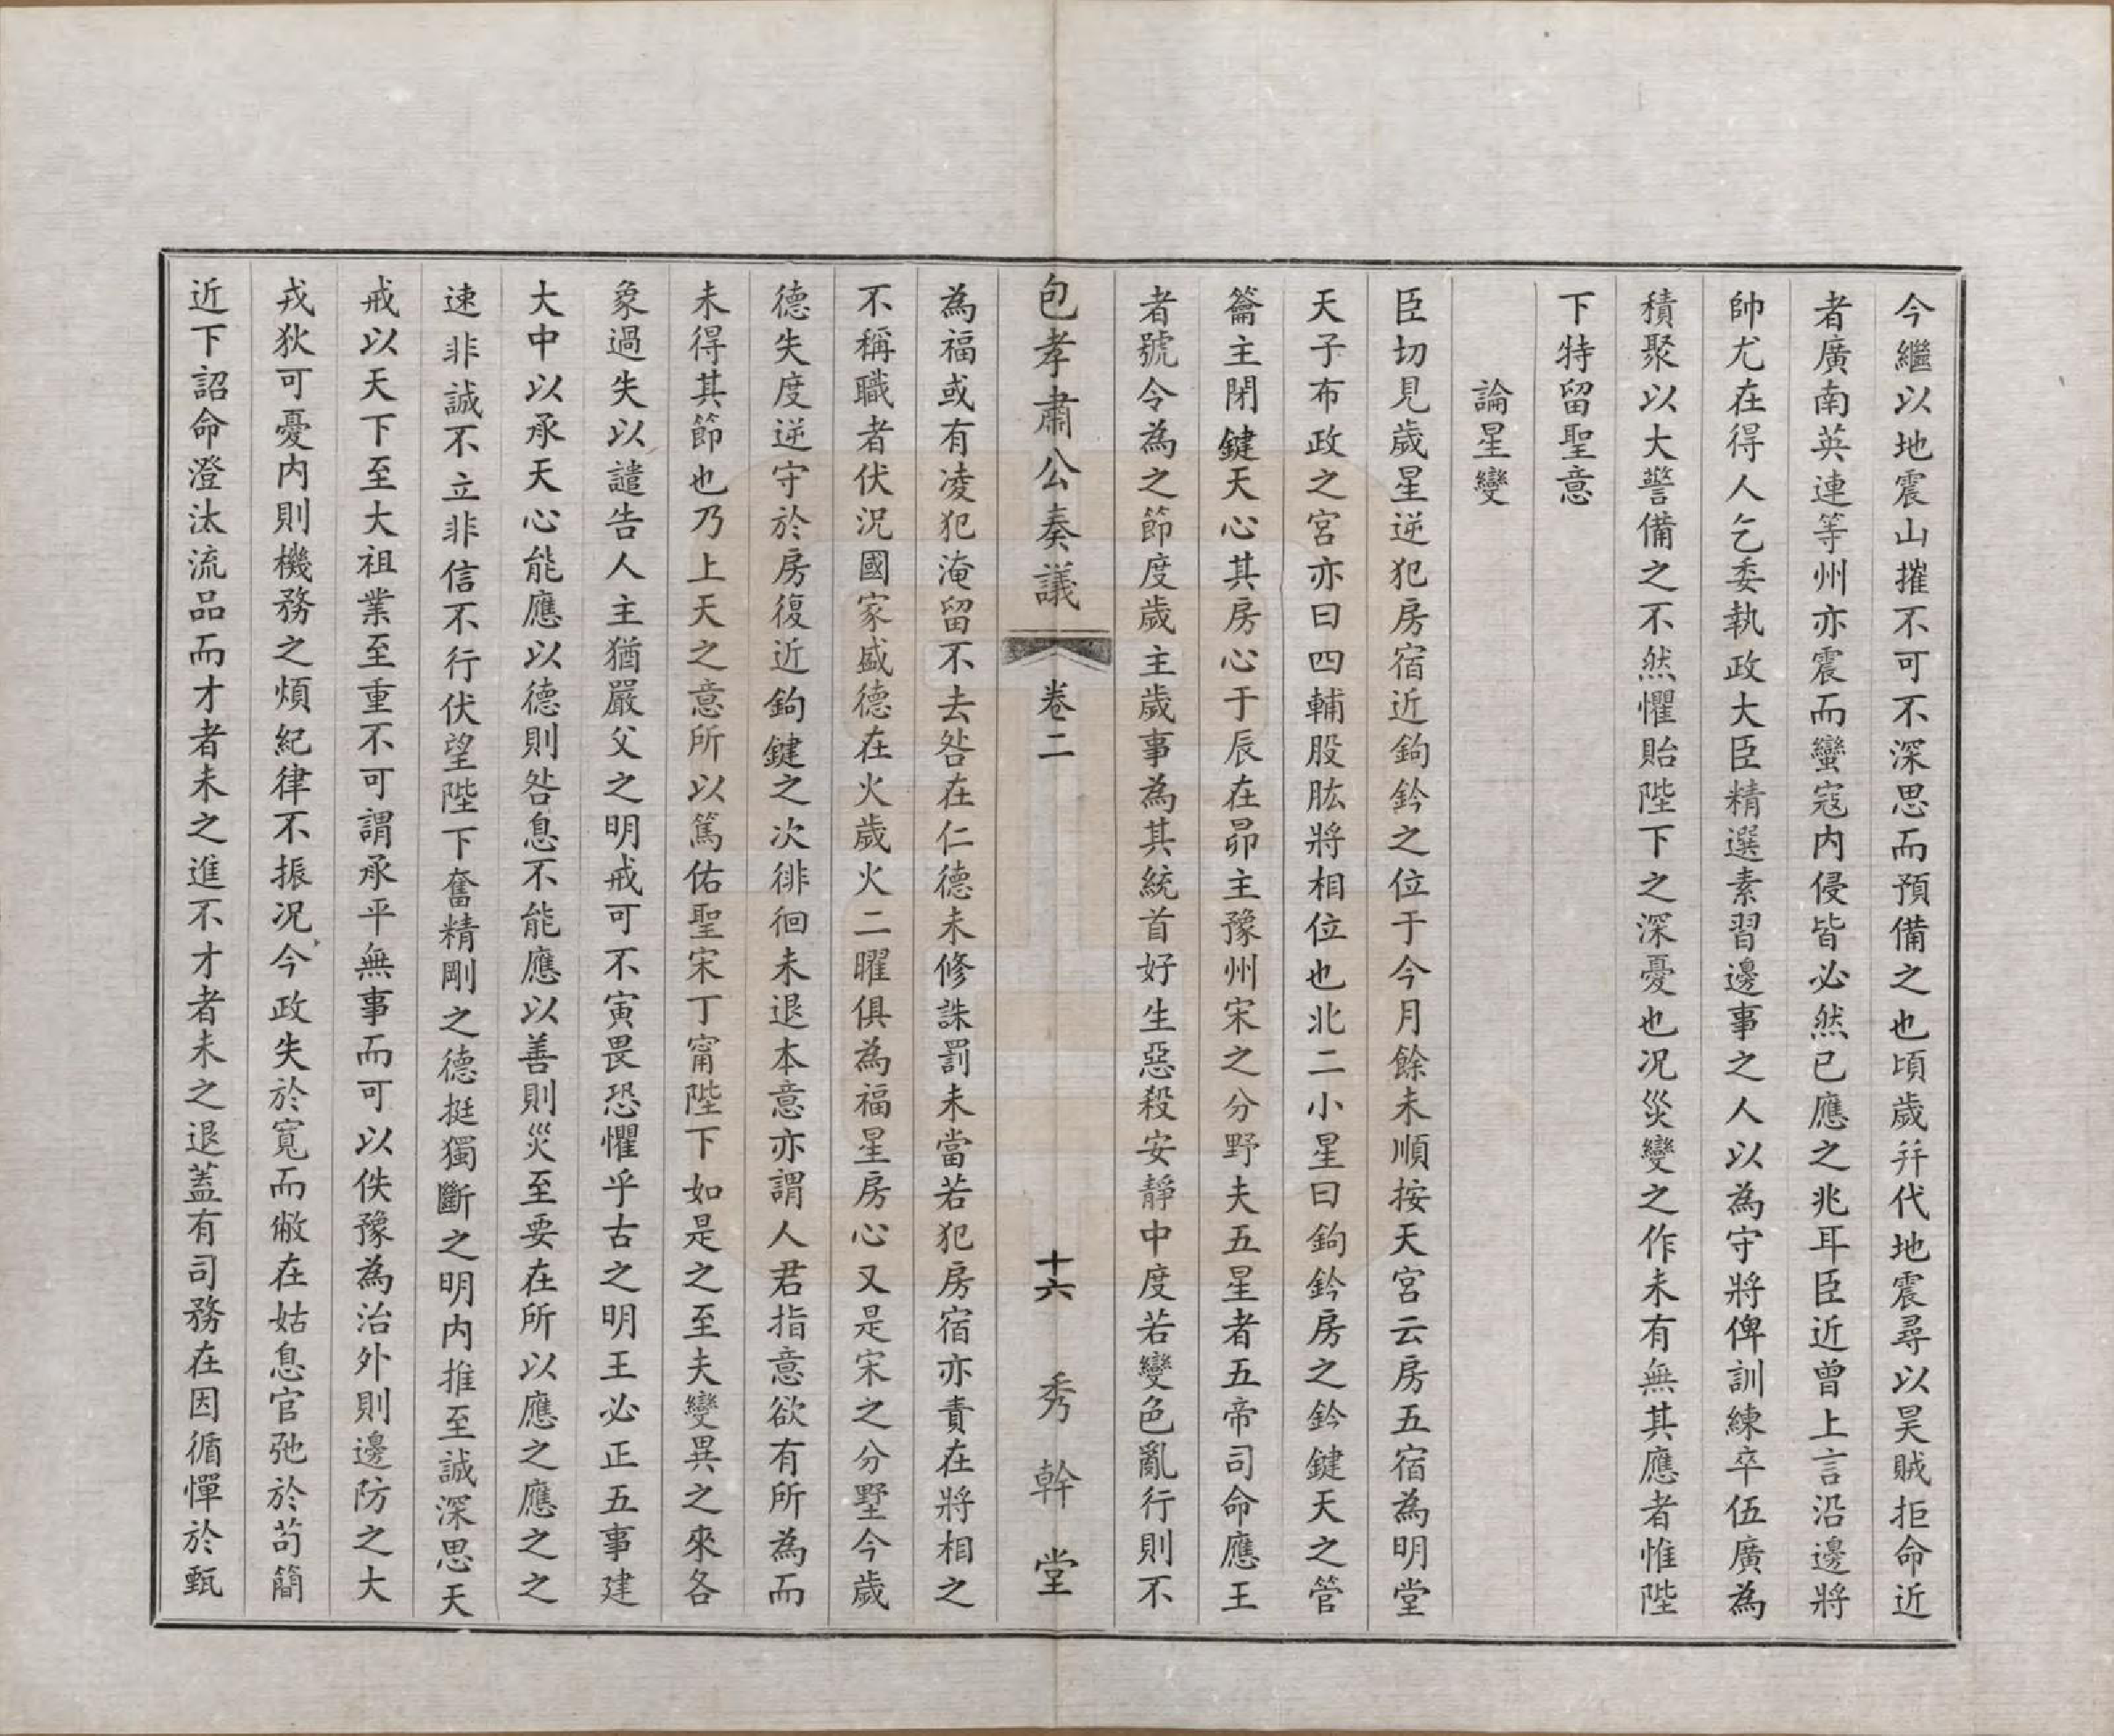 今繼以地震山摧不可不深思而預備之也頃歲并代地震尋以昊賊拒命近
者廣南英連等州亦震而蠻寇內侵皆必然已應之兆耳臣近曾上言沿邊將
帥尤在得人乞委執政大臣精選素習邊事之人以為守將俾訓練卒伍廣為
積聚以大警備之不然懼貽陛下之深憂也况災變之作未有無其應者惟陛
下特留聖意
論星變
臣切見歲星逆犯房宿近鉤鈐之位于今月餘未順按天宮云房五宿為明堂
天子布政之宮亦曰四輔股肱將相位也北二小星曰鉤鈐房之鈐鍵天之管
籥主閉鍵天心其房心于辰在昴主豫州宋之分野夫五星者五帝司命應王
者號令為之節度歲主歲事為其統首好生惡殺安靜中度若變色亂行則不
包孝肅公奏議 卷二 十六 秀幹堂
為福或有凌犯淹留不去咎在仁德未修誅罰未當若犯房宿亦責在將相之
不稱職者伏況國家盛德在火歲火二曜俱為福星房心又是宋之分墅今歲
德失度逆守於房復近鉤鍵之次徘徊未退本意亦謂人君指意欲有所為而
未得其節也乃上天之意所以篤佑聖宋丁甯陛下如是之至夫變異之來各
象過失以譴告人主猶嚴父之明戒可不寅畏恐懼乎古之明王必正五事建
大中以承天心能應以德則咎息不能應以善則災至要在所以應之應之之
速非誠不立非信不行伏望陛下奮精剛之德挺獨斷之明內推至誠深思天
戒以天下至大祖業至重不可謂承平無事而可以佚豫為治外則邊防之大
戎狄可憂內則機務之煩紀律不振况今政失於寬而敝在姑息官弛於苟簡
近下詔命澄汰流品而才者未之進不才者未之退蓋有司務在因循憚於甄